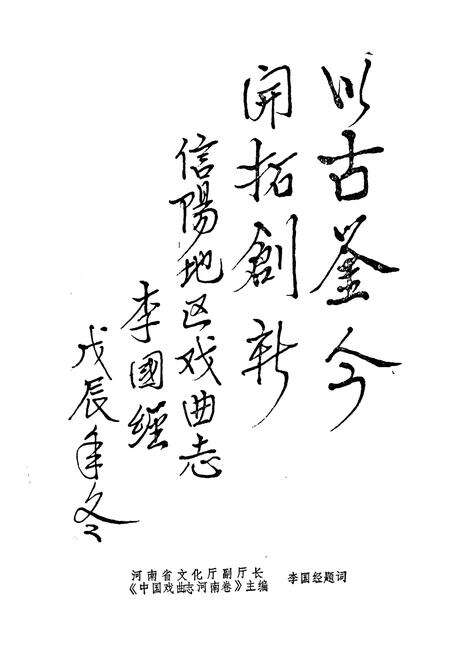 以古鉴今
開拓創新
信陽地区戏曲志
李國經
戊辰年冬
河南省文化厅副厅长
《中国戏曲志河南卷》主编
李国经题词